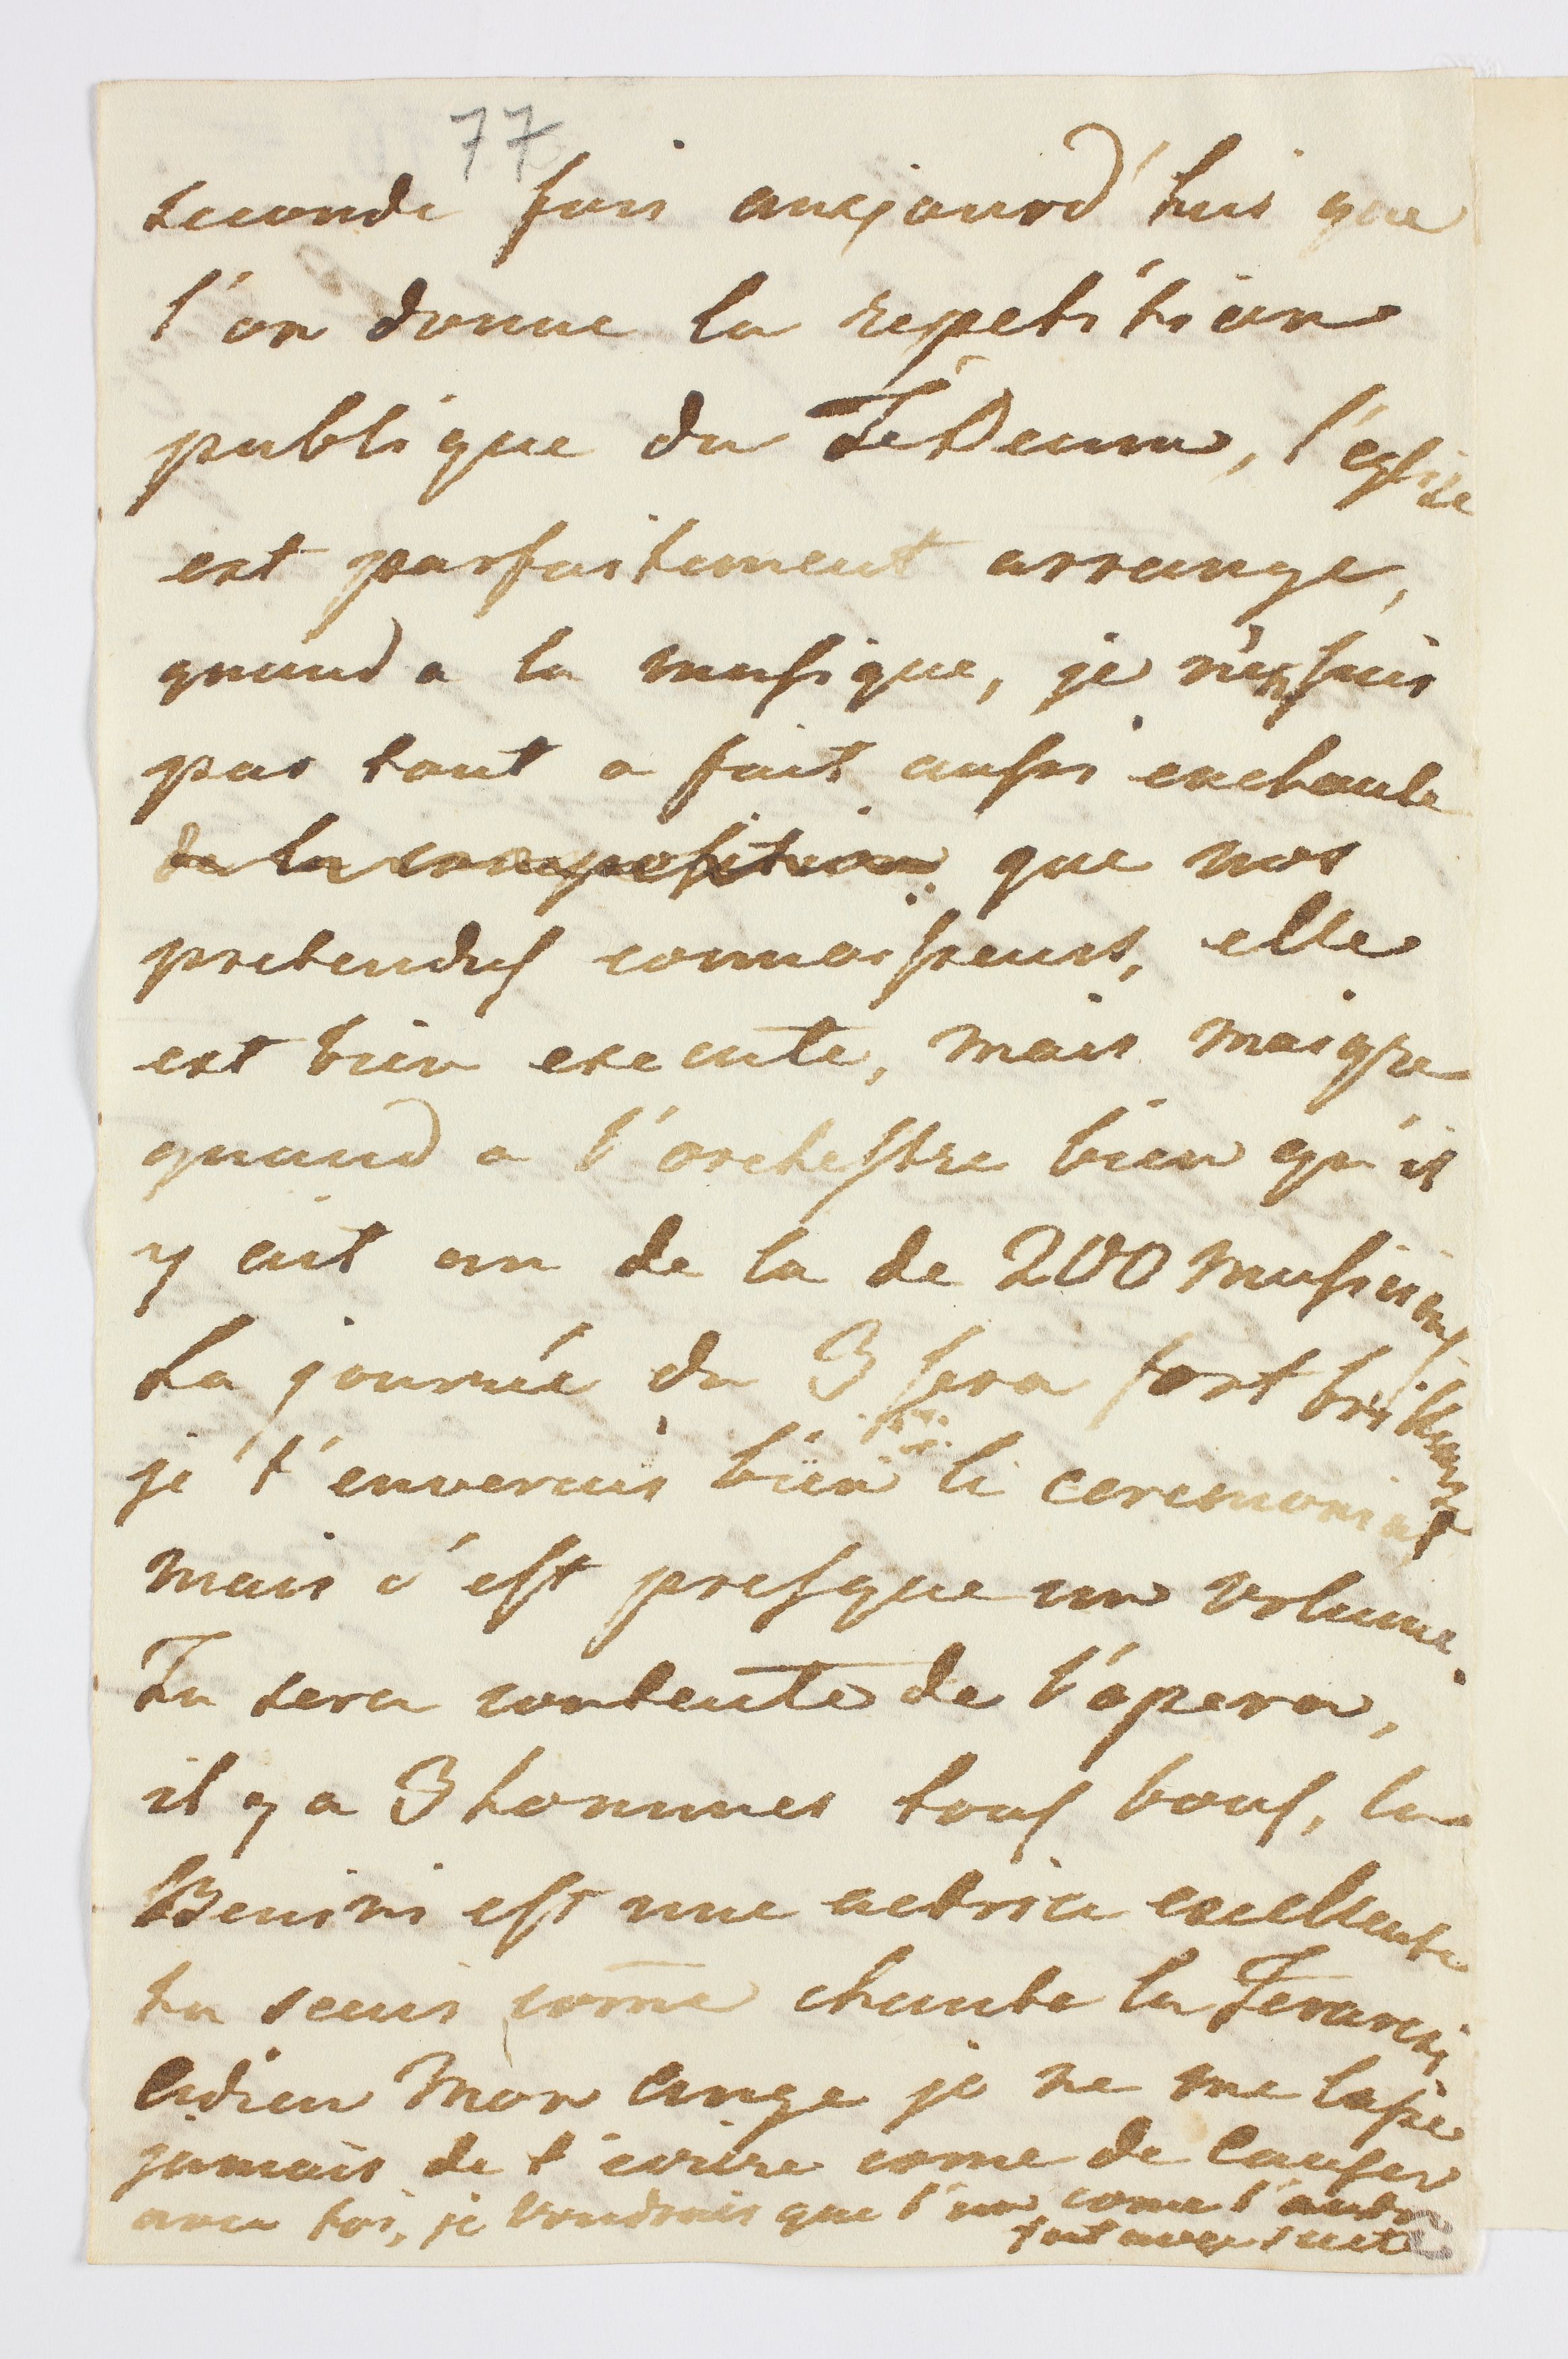 77
seconde fois aucjourd'huis que
l'on donne la repetition
publique du TeDeum, l'eglise
est parfaitement arrange,
quand a la musique, je n'en suis
pas tout a fait aussi enchante
de la composition que nos
pretendus connoisseurs, elle
est bien execute, mais maigre
quand a l'orchestre bien qu'il
y ait an de la de 200 musiciens
La journée du 3 sera fort brillante
je t'enverais bien le ceremonial
mais c'est presque un volume.
Tu sera contente de l'opera,
il y a 3 hommes tous bons, la
Benini est une actrice excellente
tu scais come chante la Feraresi,
adieu Mon ange je ne me lasse
jamais de t'ecrire come de causer
avec toi, je voudrais que l'un come l'autre
fut